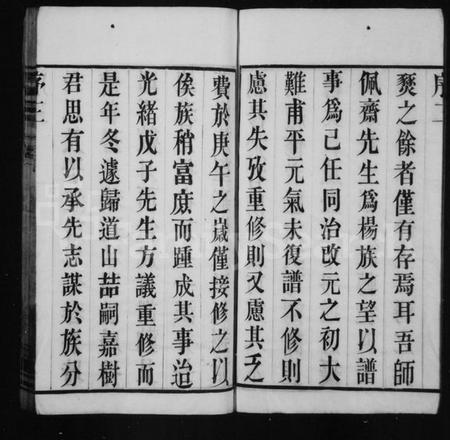 序二
燹之餘者僅有存焉耳吾師
佩齋先生爲楊族之望以譜
事爲己任同治改元之初大
難甫平元氣未復譜不修則
慮其失攷重修則又慮其乏
費於庚午之歲僅接修之以
俟族稍富庶而踵成其事迨
光緒戊子先生方議重修而
是年冬遽歸道山喆嗣嘉樹
君思有以承先志謀於族分
序三